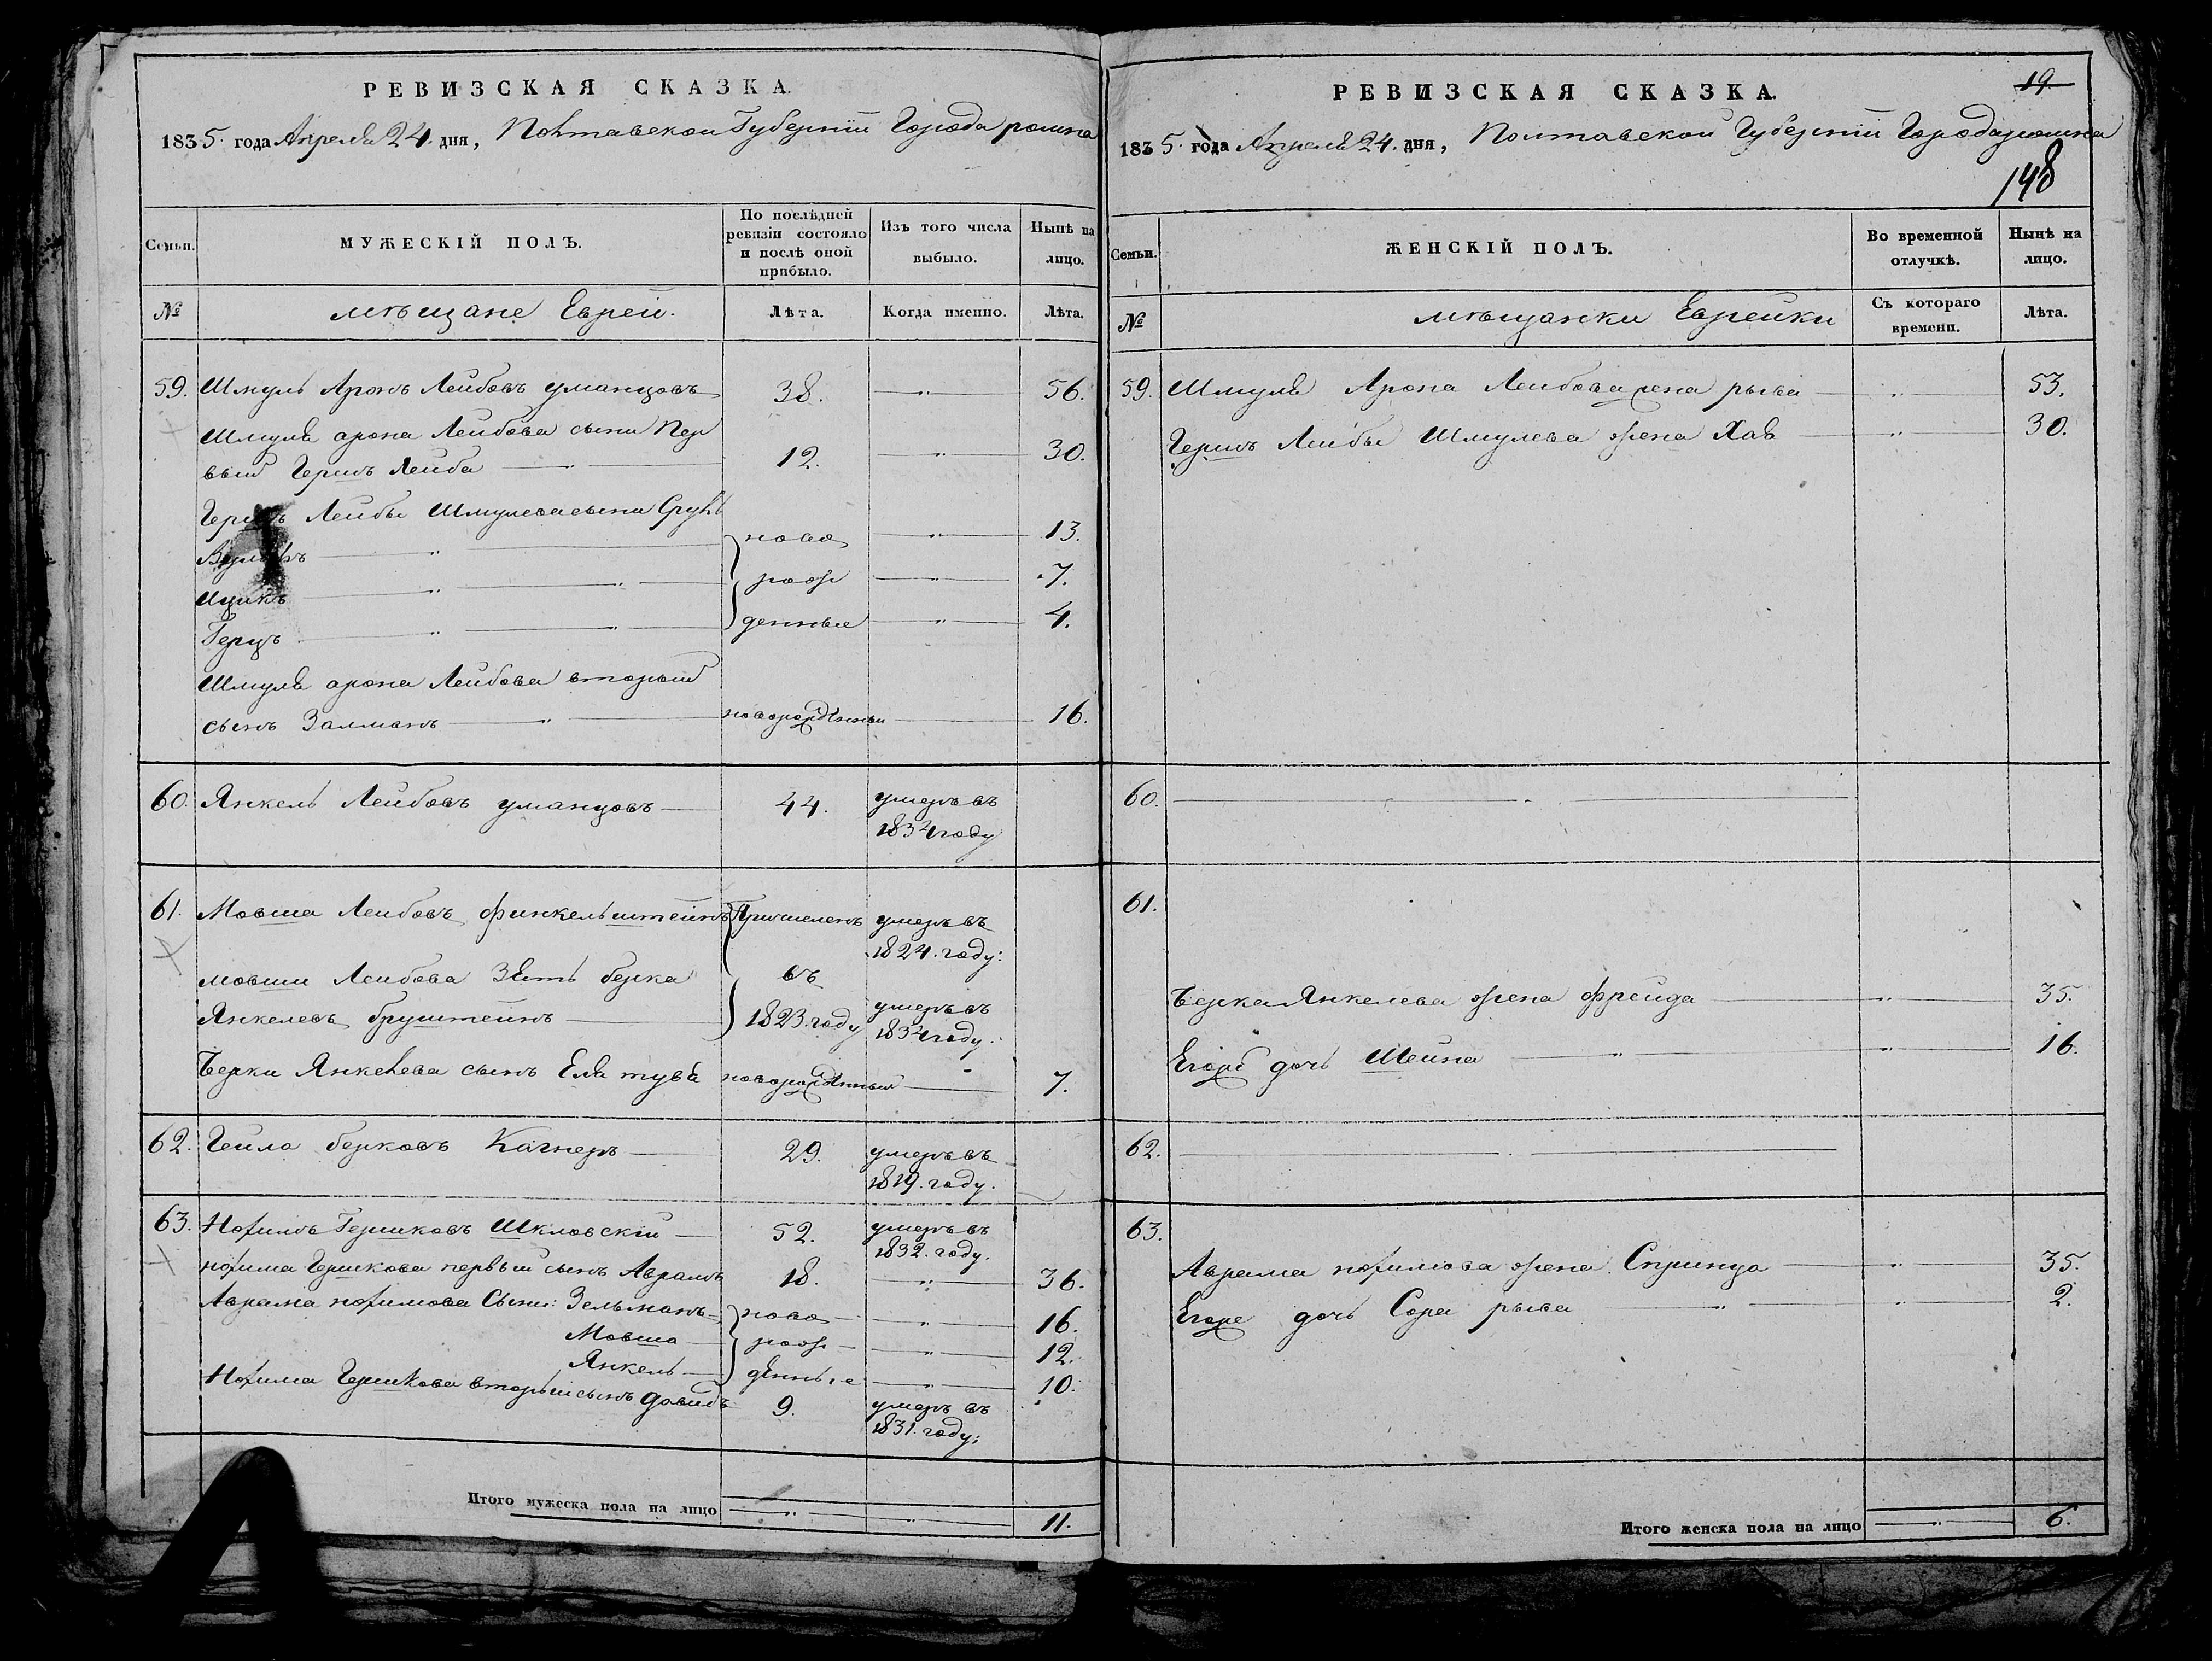 РЕВИЗСКАЯ СКАЗКА.
1835. года Апреля 24. дня, Полтавской Губернїи Города ромна
Семьи.
МУЖЕСКІЙ ПОЛЪ.
По послѣдней ревизіи состояло и послѣ оной прибыло.
Изъ того числа выбыло.
Нынѣ на лицо.
№
мѣщане Евреи.
Лѣта.
Когда именно.
Лѣта.
59. Шмуль Аронъ Лейбовъ уманцовъ 38. 56.
Шмуля арона Лейбова сынъ Пер
вый Гершъ Лейба 12. 30.
Гершъ Лейбы Шмулева сыни Сруль 13.
ново
7.
Ицикъ рож
Герцъ денные 4.
Шмуля арона Лейбова вторый
сынъ Залманъ новорожденный 16.
60. Янкель Лейбовъ уманцовъ 44. умеръ въ
1834 году
61. Мовша Лейбовъ финкельштейнъ Причисленъ умеръ въ
1824. году:
мовши Лейбова Зять берка въ
Янкелевъ бруштейнъ 1823. году умеръ въ
1834 году.
Берки Янкелева сынъ Еля тувa новорожденный 7.
62. Гейло берковъ Кагнеръ 29. умеръ въ
1819. году.
63. Нохимъ Гершковъ Шкловскій 52. умеръ въ
1832. году.
нохима Гершкова первый сынъ Аврамъ 18. 36.
Аврама нохимова Сыни: Зельманъ ново 16.
Мовша рож 12.
Янкель денные 10.
Нохима Гершкова вторый сынъ Давидъ 9. умеръ въ
1831. году:
Итого мужеска пола на лицо 11.
РЕВИЗСКАЯ СКАЗКА.
19
1835. года Апреля 24. дня, Полтавской Губернїи Города ромна
148
Семьи.
ЖЕНСКІЙ ПОЛЪ.
Во временной отлучкѣ.
Нынѣ на лицо.
№
мѣщанки Еврейки
Съ котораго времени.
Лѣта.
59. Шмуля Арона Лейбова жена рыва 53.
Гершъ Лейбы Шмулева жена Хая 30.
60.
61.
Берка Янкелева жена фрейда 35.
Егожъ дочь Шейна 16.
62.
63.
Аврама нохимова жена Спринца 35.
Егоже дочь Сора рыва 2.
Итого женска пола на лицо 6.